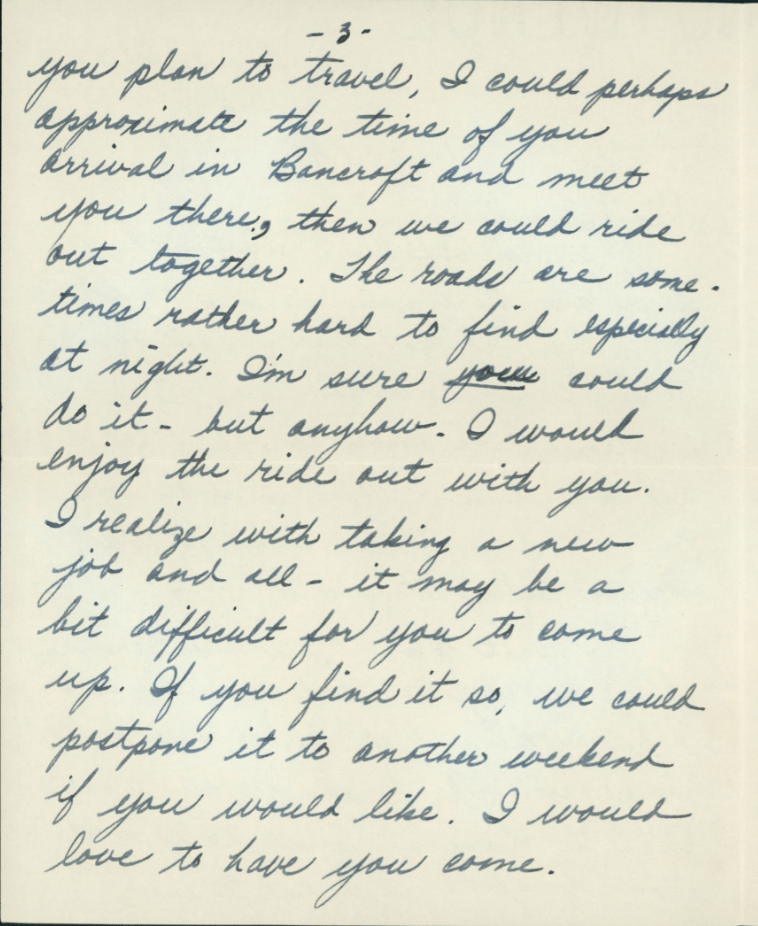 - 3 -
you plan to travel, I could perhaps
approximate the time of you
arrival in Bancroft and meet
you there, then we could ride
out together. The roads are some-
times rather hard to find especially
at night. I'm sure you could
do it - but anyhow - I would
enjoy the ride out with you.
I realize with taking a new
job and all - it may be a
bit difficult for you to come
up. If you find it so, we could
postpone it to another weekend
if you would like. I would
love to have you come.